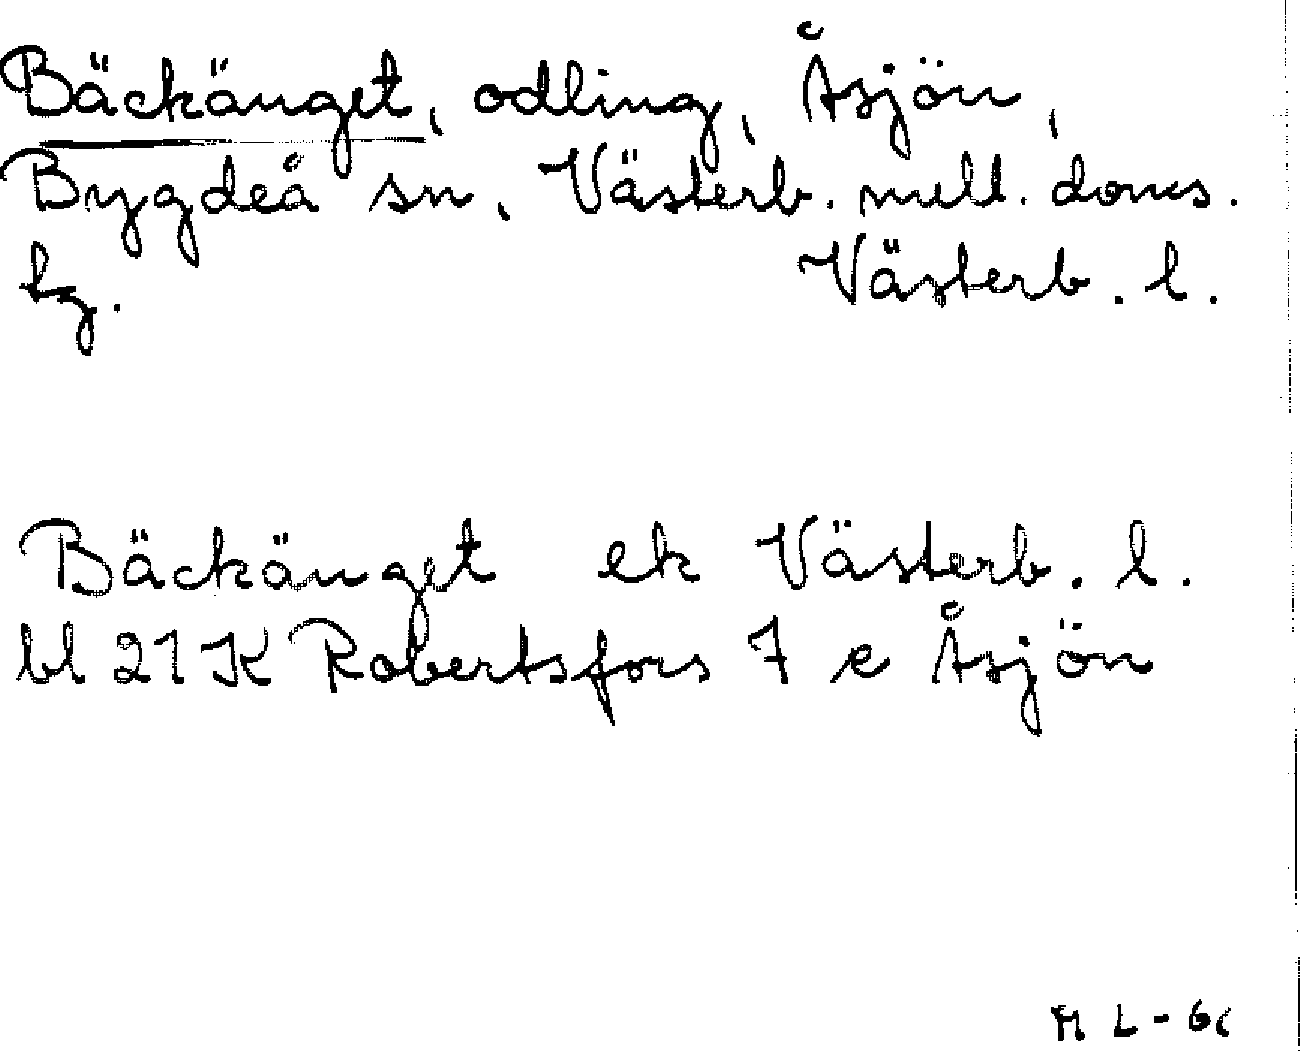 Bäckänget, odling, Åsjön,
Bygdeå sn, Västerb. mell. doms.
tg. Västerb. l.
Bäckänget ek Västerb. l.
bl 21K Robertsfors 7 e Åsjön
M L-